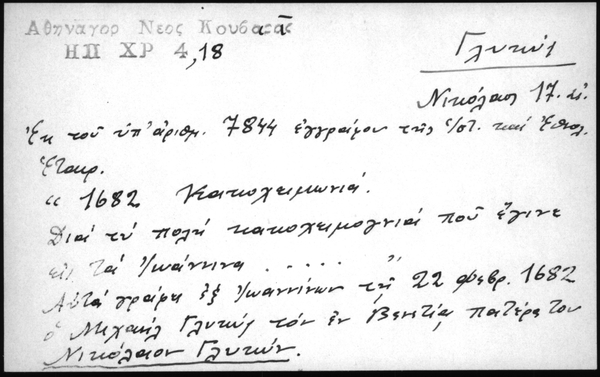 Αθηναγορ Νεος Κουβαρας
ΗΠ ΧΡ 4,18
Γλυκύς
Νικόλαος 17. αἰ.
Ἐκ τοῦ ὑπ' ἀριθμ. 7844 ἐγγράφου τῆς Ἱστ. καί Ἐθνολ.
Ἑταιρ.
" 1682 Κακοχειμωνιά.
Διά τύ πολή κακοχειμογνιά πού ἔγινε
εἰς τά Ἰωάννινα ..... "
Αὐτά γράφει ἐξ Ἰωαννίνων τῇ 22 φεβρ. 1682
ὁ Μιχαήλ Γλυκύς τόν ἐν Βενετίᾳ πατέρα του
Νικόλαον Γλυκύν.